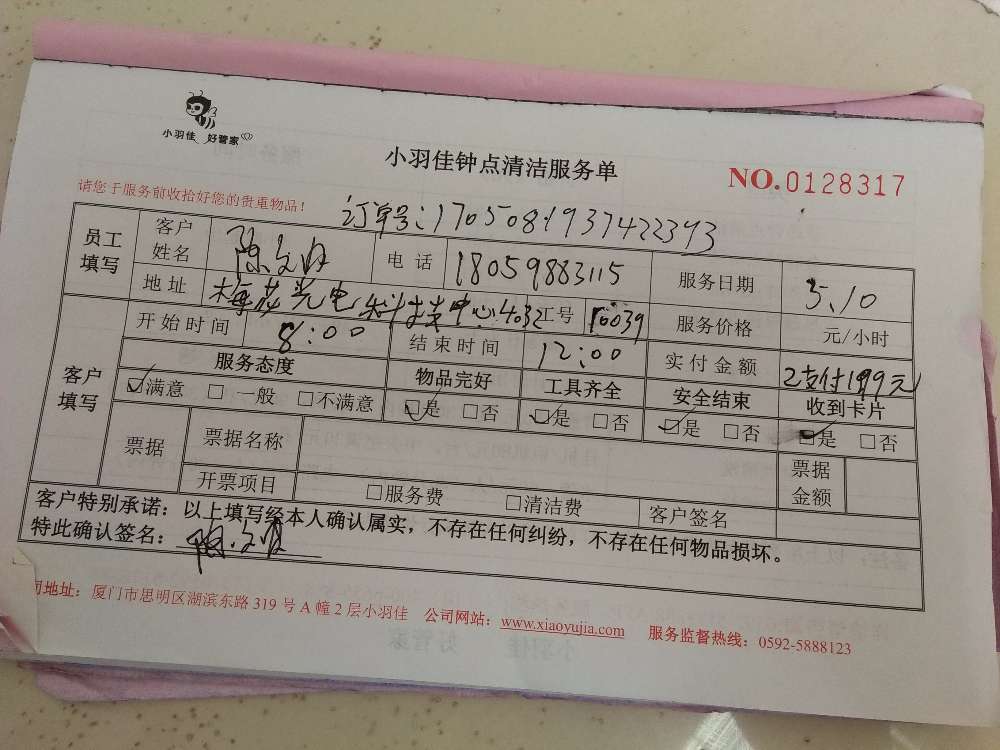 小羽佳 好管家
小羽佳钟点清洁服务单
NO.0128317
请您于服务前收拾好您的贵重物品！
订单号:1705081937422393
员工填写 客户姓名 陈文 电话 18059883115 服务日期 5.10
地址 光电科技中心4032 工号 10039 服务价格 元/小时
开始时间 8:00 结束时间 12:00 实付金额 已支付199元
客户填写 服务态度 物品完好 工具齐全 安全结束 收到卡片
☑满意 □一般 □不满意 ☑是 □否 ☑是 □否 ☑是 □否 ☑是 □否
票据 票据名称 票据金额
开票项目 □服务费 □清洁费 客户签名
客户特别承诺：以上填写经本人确认属实，不存在任何纠纷，不存在任何物品损坏。
特此确认签名：陈文
司地址：厦门市思明区湖滨东路319号A幢2层小羽佳 公司网站：www.xiaoyujia.com 服务监督热线：0592-5888123